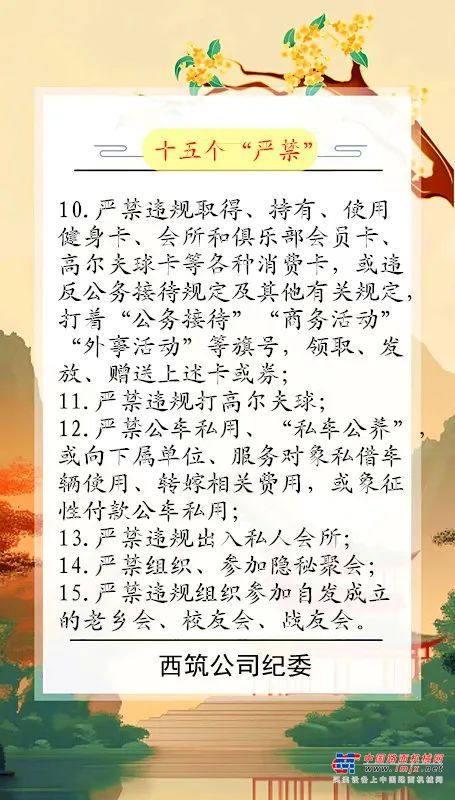 十五个“严禁”
10.严禁违规取得、持有、使用
健身卡、会所和俱乐部会员卡、
高尔夫球卡等各种消费卡，或违
反公务接待规定及其他有关规定，
打着“公务接待”“商务活动”
“外事活动”等旗号，领取、发
放、赠送上述卡或券；
11.严禁违规打高尔夫球；
12.严禁公车私用、“私车公养”，
或向下属单位、服务对象私借车
辆使用、转嫁相关费用，或象征
性付款公车私用；
13.严禁违规出入私人会所；
14.严禁组织、参加隐秘聚会；
15.严禁违规组织参加自发成立
的老乡会、校友会、战友会。
西筑公司纪委
中国路面机械网
www.lmjx.net
买卖设备上中国路面机械网